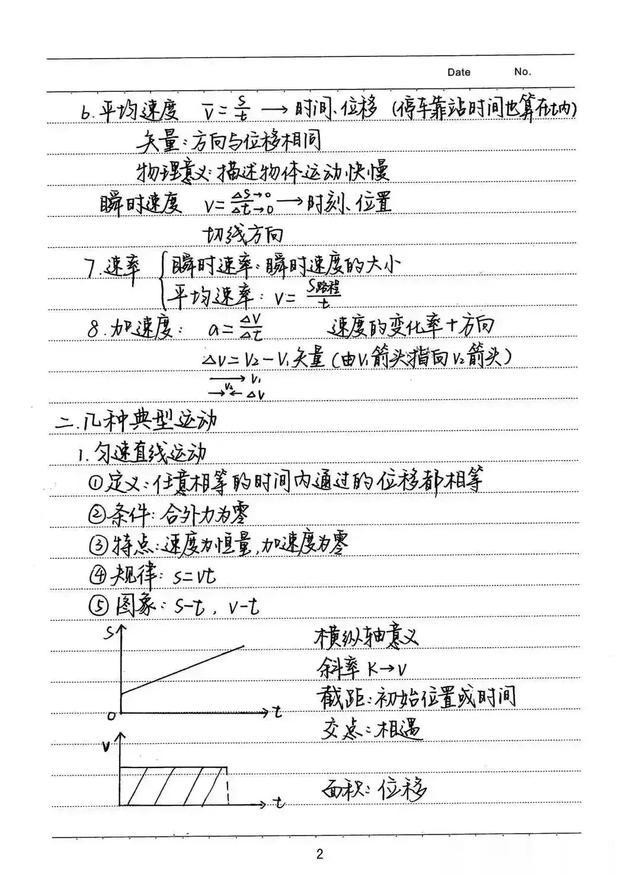 Date No.
6.平均速度 v̅=s/t → 时间、位移 (停车靠站时间也算在t内)
矢量:方向与位移相同
物理意义:描述物体运动快慢
瞬时速度 v=Δs→0/Δt→0 → 时刻、位置
切线方向
7.速率 { 瞬时速率:瞬时速度的大小
平均速率:v=S路程/t
8.加速度: a=Δv/Δt 速度的变化率+方向
Δv=V₂-V₁ 矢量(由V₁箭头指向V₂箭头)
V₁
V₂ ΔV
二.几种典型运动
1.匀速直线运动
①定义:任意相等的时间内通过的位移都相等
②条件:合外力为零
③特点:速度为恒量,加速度为零
④规律:s=vt
⑤图象:s-t, v-t
S
横纵轴意义
斜率K→V
截距:初始位置或时间
0 t
交点:相遇
V
面积:位移
t
2